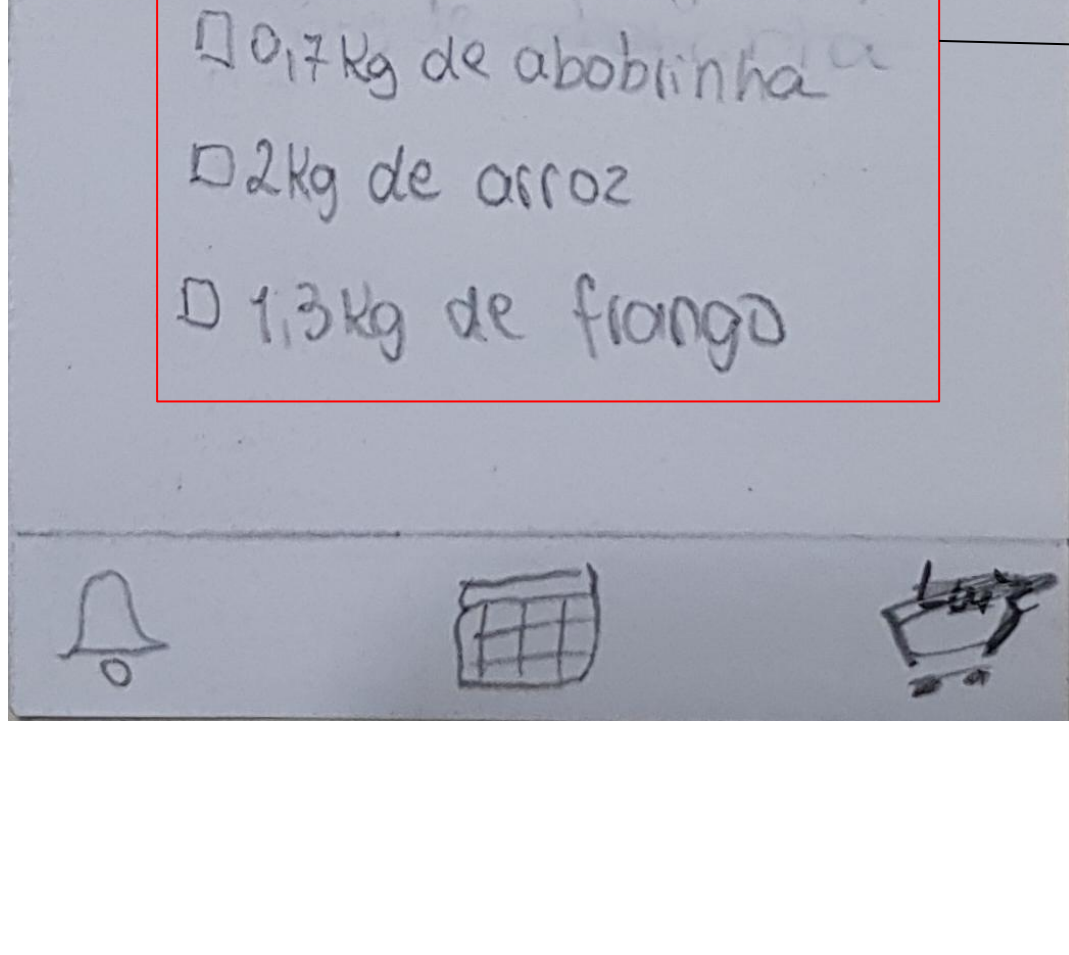 0,7Kg de abobrinha
2Kg de arroz
1,3Kg de frango